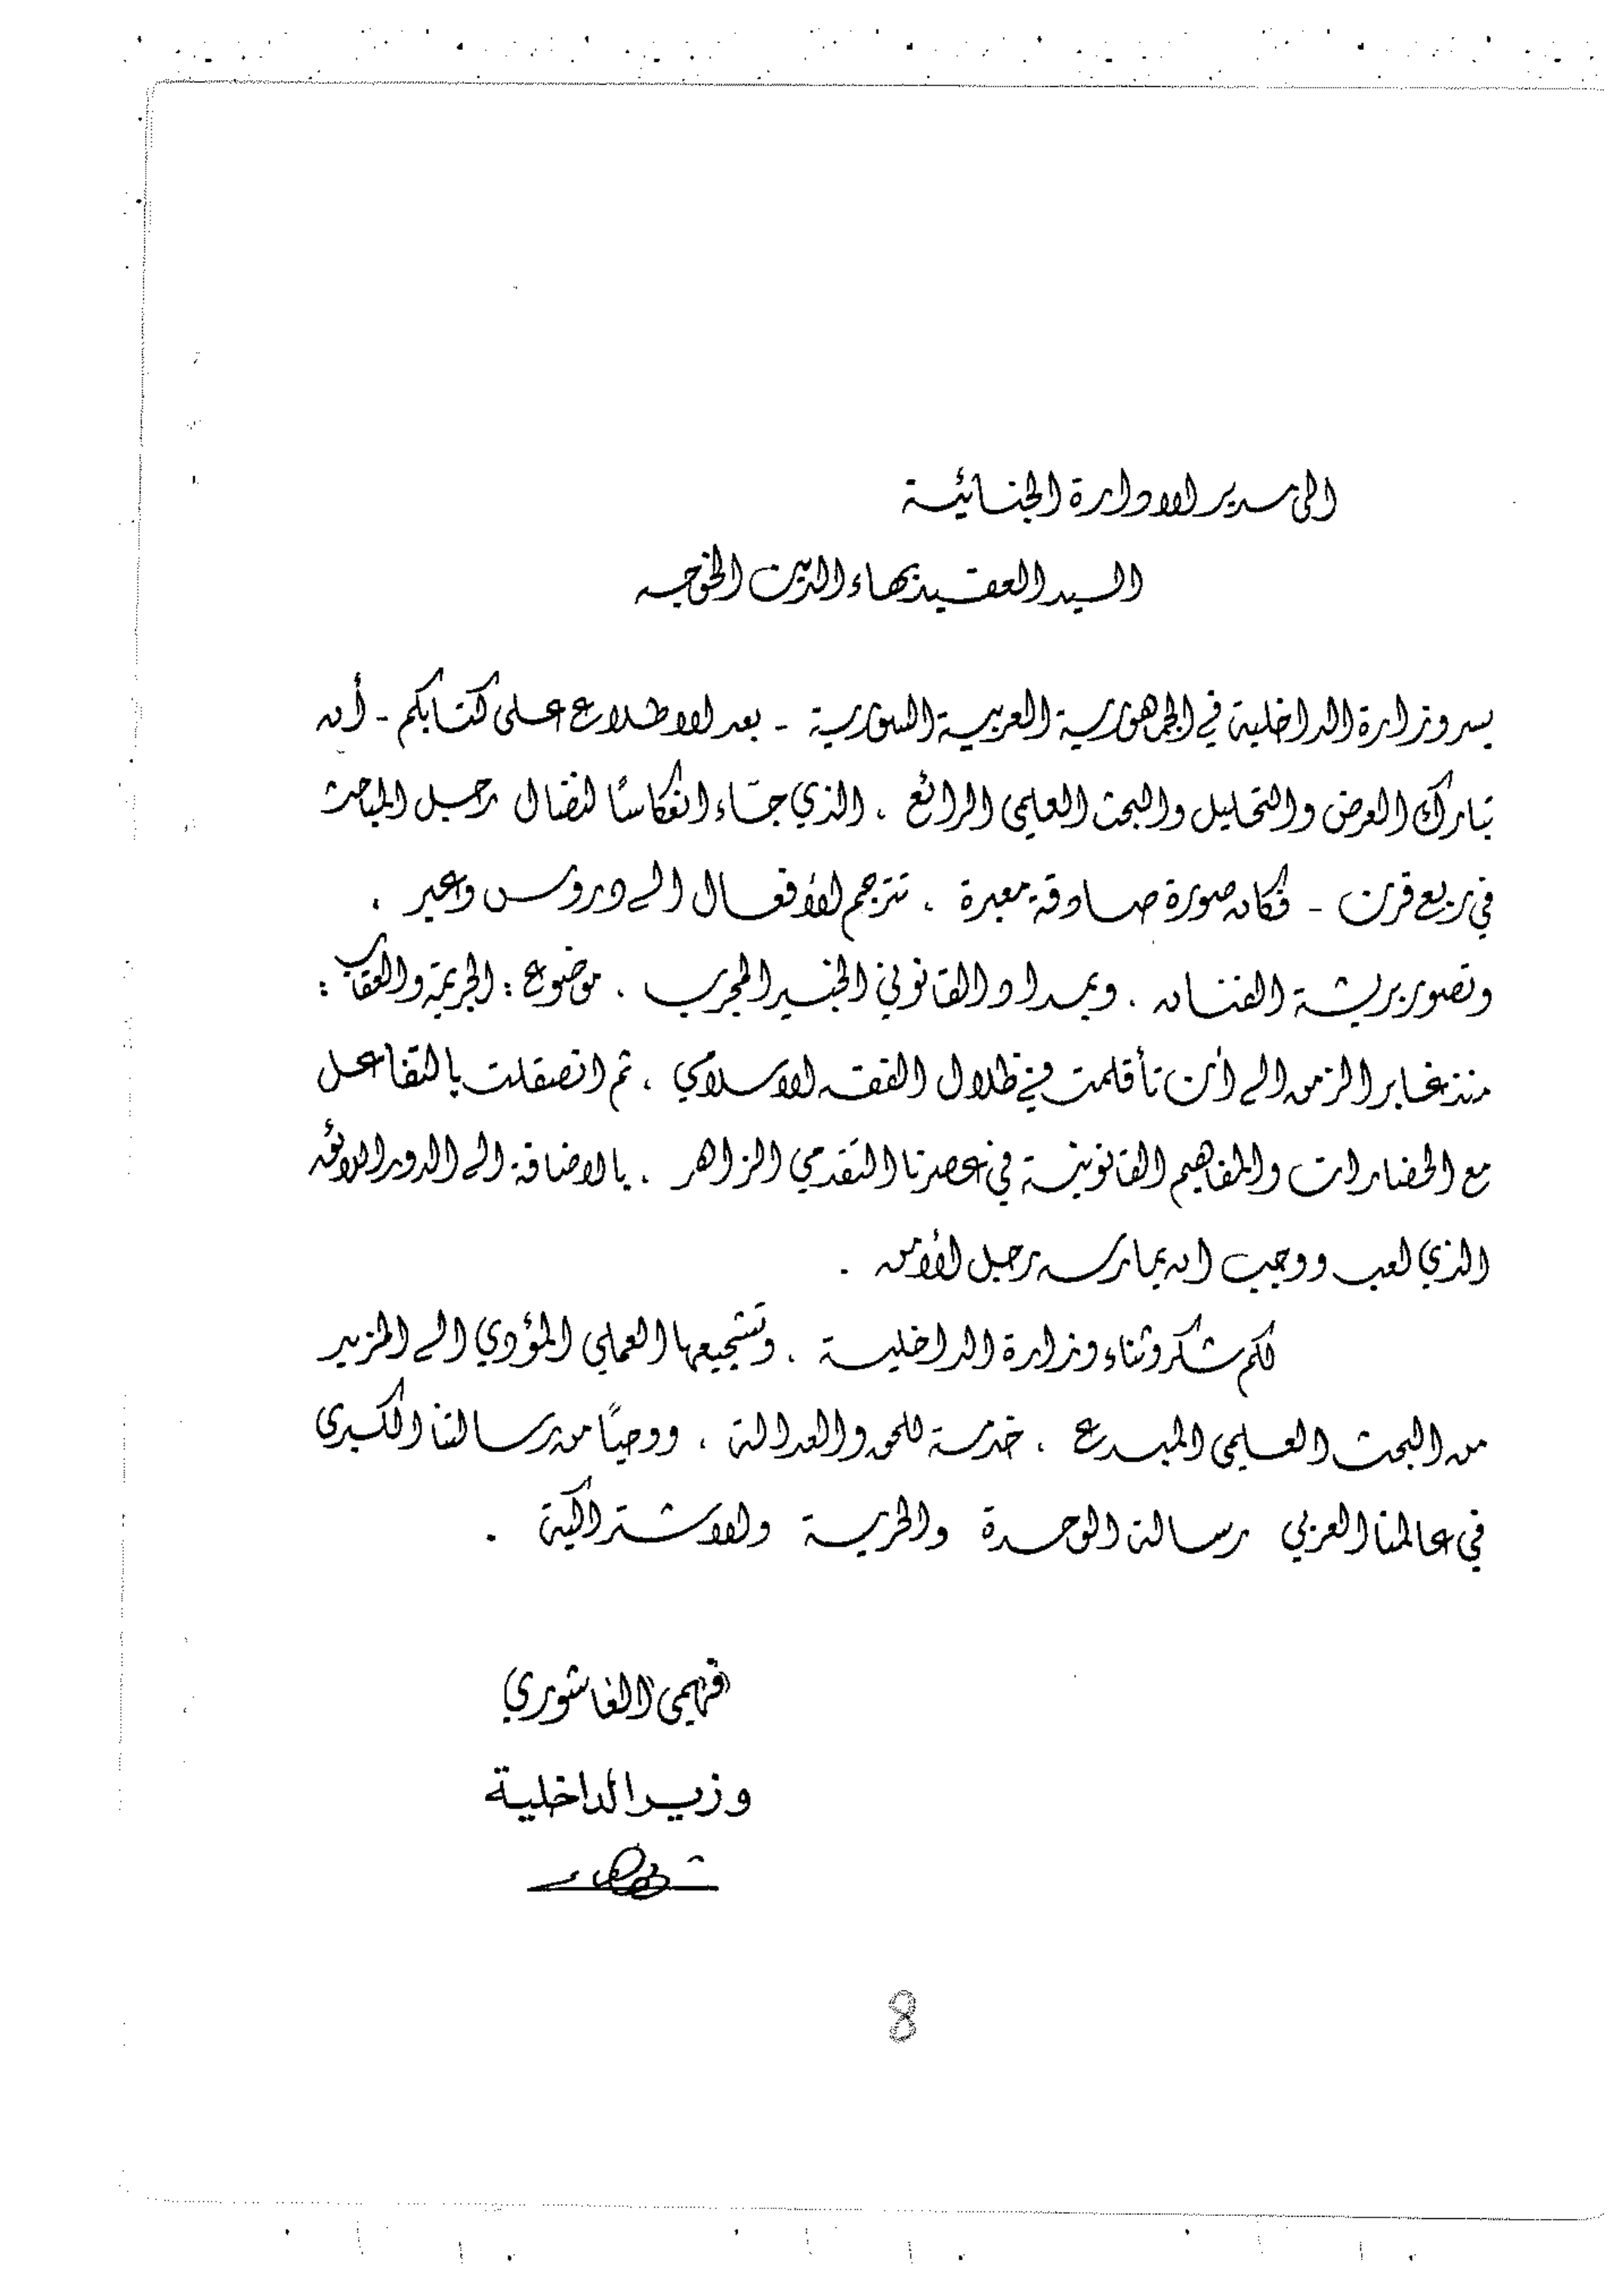 الى مدير الادارة الجنائية
السيد العقيد بهاء الدين الخوجه
يسر وزارة الداخلية في الجمهورية العربية السورية - بعد الاطلاع على كتابكم - أن
تبارك العرض والتحليل والبحث العلمي الرائع ، الذي جاء انعكاسًا لنضال رجل المباحث
في ربع قرن - فكان صورة صادقة معبرة ، تترجم الأفعال الى دروس وعبر ،
وتصور بريشة الفنان ، وبمداد القانوني الخبير المجرب ، موضوع : الجريمة والعقاب :
منذ غابر الزمن الى أن تأقلمت في ظلال الفقه الاسلامي ، ثم انصقلت بالتفاعل
مع الحضارات والمفاهيم القانونية في عصرنا التقدمي الزاهر ، بالاضافة الى الدور اللائق
الذي لعب ووجب ان يمارسه رجل الأمن .
لكم شكر وثناء وزارة الداخلية ، وتشجيعها العملي المؤدي الى المزيد
من البحث العلمي المبدع ، خدمة للحق والعدالة ، ووحيًا من رسالتنا الكبرى
في عالمنا العربي رسالة الوحدة والحرية والاشتراكية .
فهمي العاشوري
وزير الداخلية
8